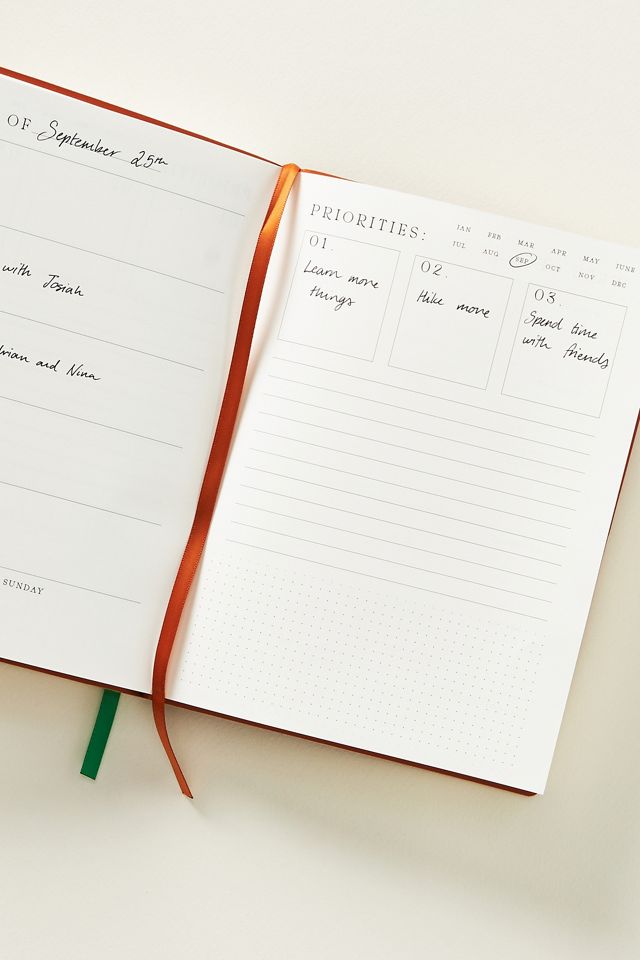 OF September 25th
with Josiah
and Nina
SUNDAY
PRIORITIES:
JAN FEB MAR APR MAY JUNE
JUL AUG SEP OCT NOV DEC
01.
Learn more
things
02.
Hike more
03.
Spend time
with friends